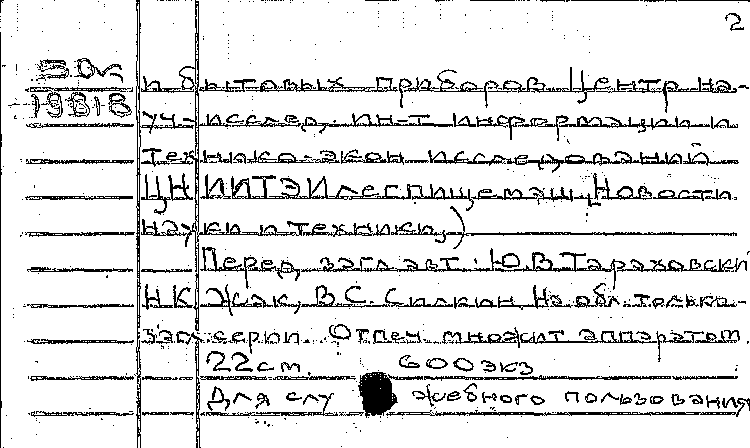 2
и бытовых приборов Центр на-
уч-исслед. ин-т информации и
технико-экон исследований
ЦНИИТЭИлегпищемаш, Новости
науки и техники,)
Перед загл авт: Ю.В.Тараховский
Н.К. Жак, В.С. Силкин. На обл. только
загл серии. Отпеч множит аппаратом.
22см. 600экз
Для служебного пользования